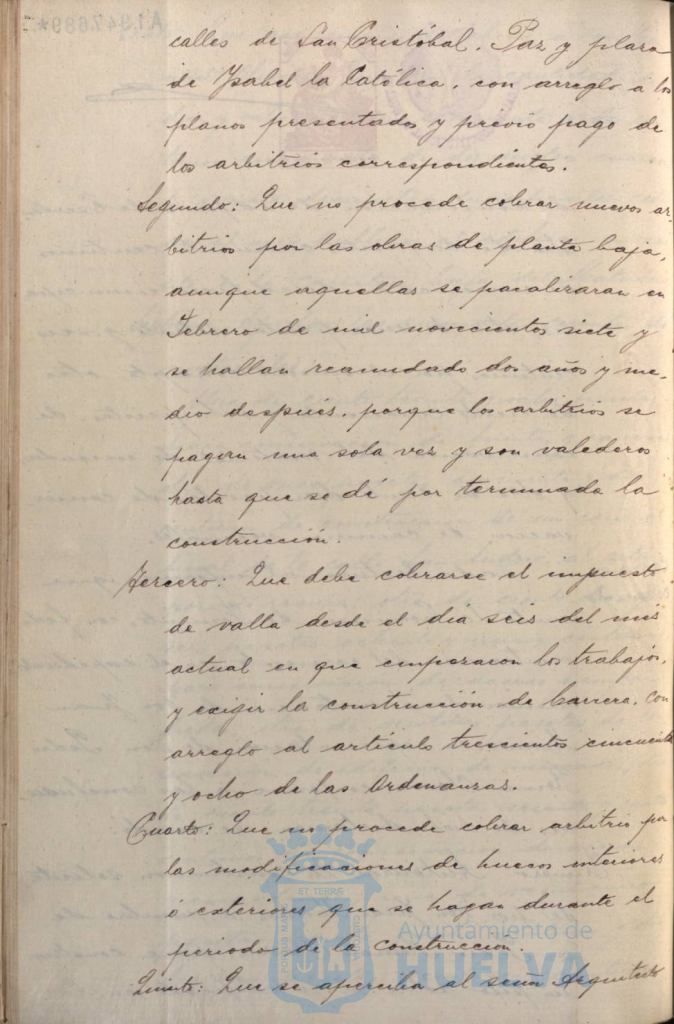 calles de San Cristóbal, Paz y plaza
de Ysabel la Católica, con arreglo á los
planos presentados y previo pago de
los arbitrios correspondientes.
Segundo: Que no procede cobrar nuevos ar-
bitrios por las obras de planta baja,
aunque aquellas se paralizaran en
Febrero de mil novecientos siete y
se hallan reanudado dos años y me-
dio después, porque los arbitrios se
pagan una sola vez y son valederos
hasta que se dé por terminada la
construcción.
Tercero: Que debe cobrarse el impuesto
de valla desde el día seis del mes
actual en que empezaron los trabajos,
y exigir la construcción de barrera, con
arreglo al artículo trescientos cincuenta
y ocho de las Ordenanzas.
Cuarto: Que no procede cobrar arbitrio por
las modificaciones de huecos interiores
ó exteriores que se hagan durante el
periodo de la construcción.
Quinto: Que se aperciba al señor Arquitecto
Ayuntamiento de
HUELVA